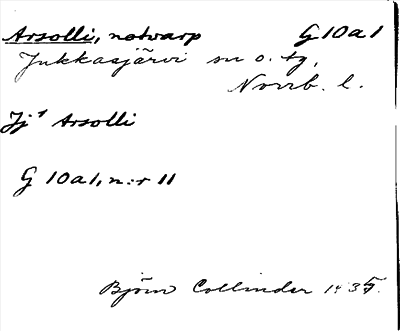 Arsolli, notvarp G 10 a 1
Jukkasjärvi sn o. tg,
Norrb. l.
Jj¹ Arsolli
G 10 a 1, n:r 11
Björn Collinder 1935.